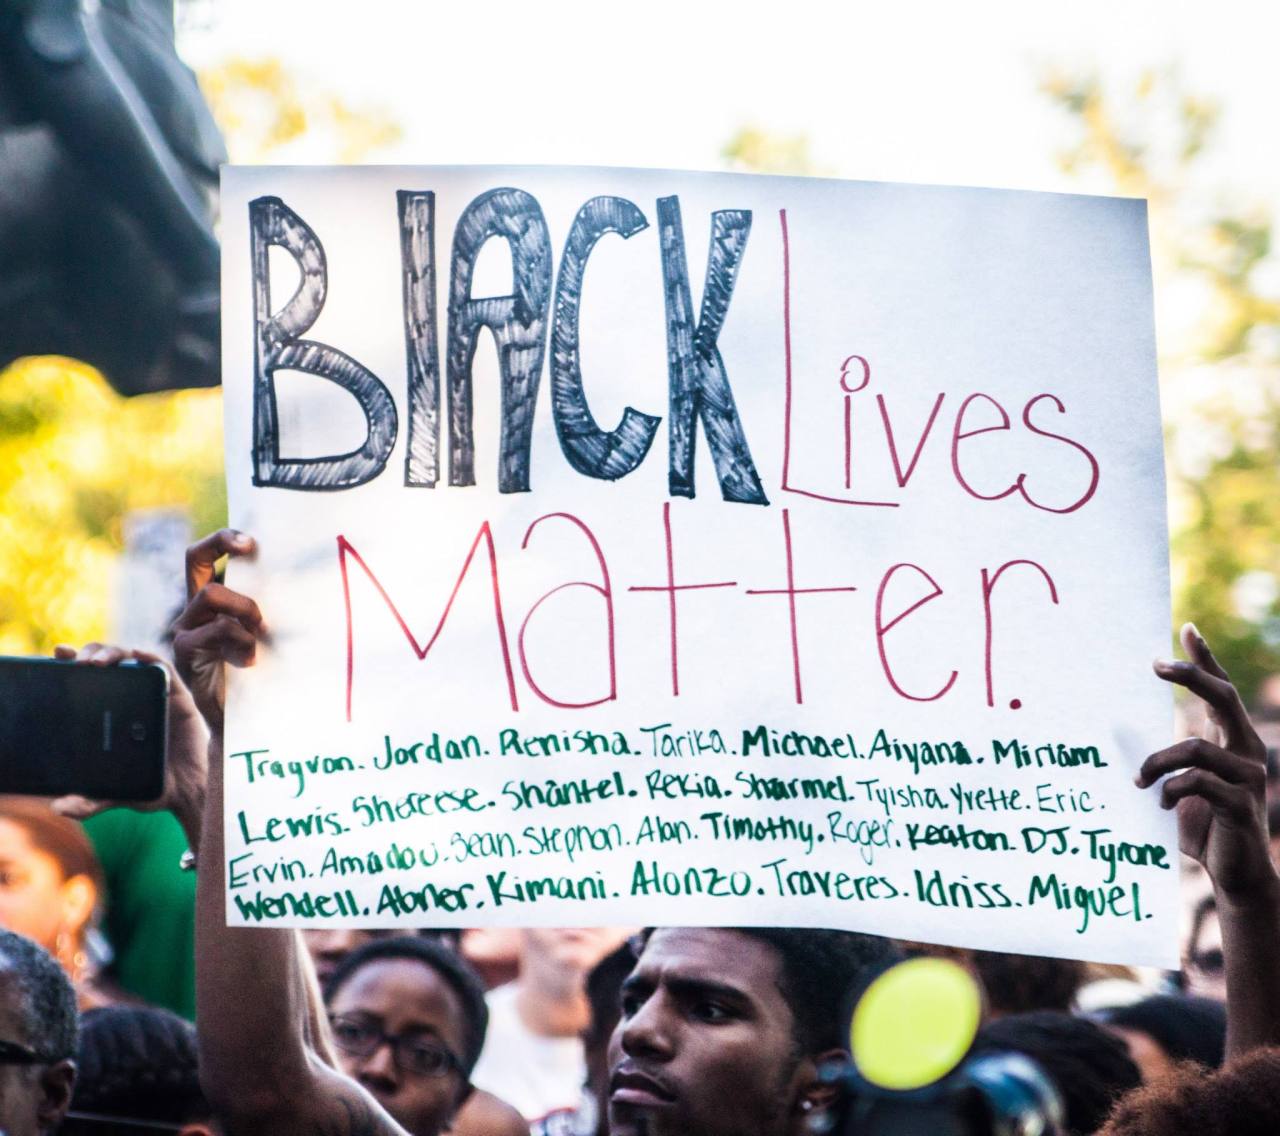 BlACK Lives
Matter.
Trayvon. Jordan. Renisha. Tarika. Michael. Aiyana. Miriam
Lewis. Shereese. Shantel. Rekia. Sharmel. Tyisha. Yvette. Eric.
Ervin. Amadou. Sean. Stephon. Alan. Timothy. Roger. Keaton. DJ. Tyrone
Wendell. Abner. Kimani. Alonzo. Traveres. Idriss. Miguel.